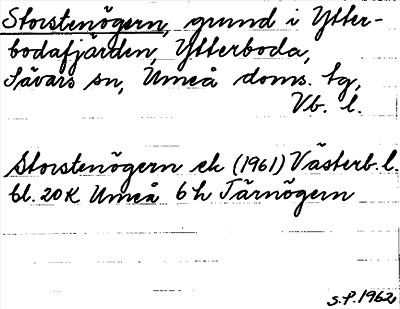 Storstenögern, grund i Ytter-
bodafjärden, Ytterboda,
Sävars sn, Umeå doms. tg,
Vb. l.
Storstenögern ek (1961) Västerb. l.
bl. 20K Umeå 6h Tärnögern
S.P. 1962